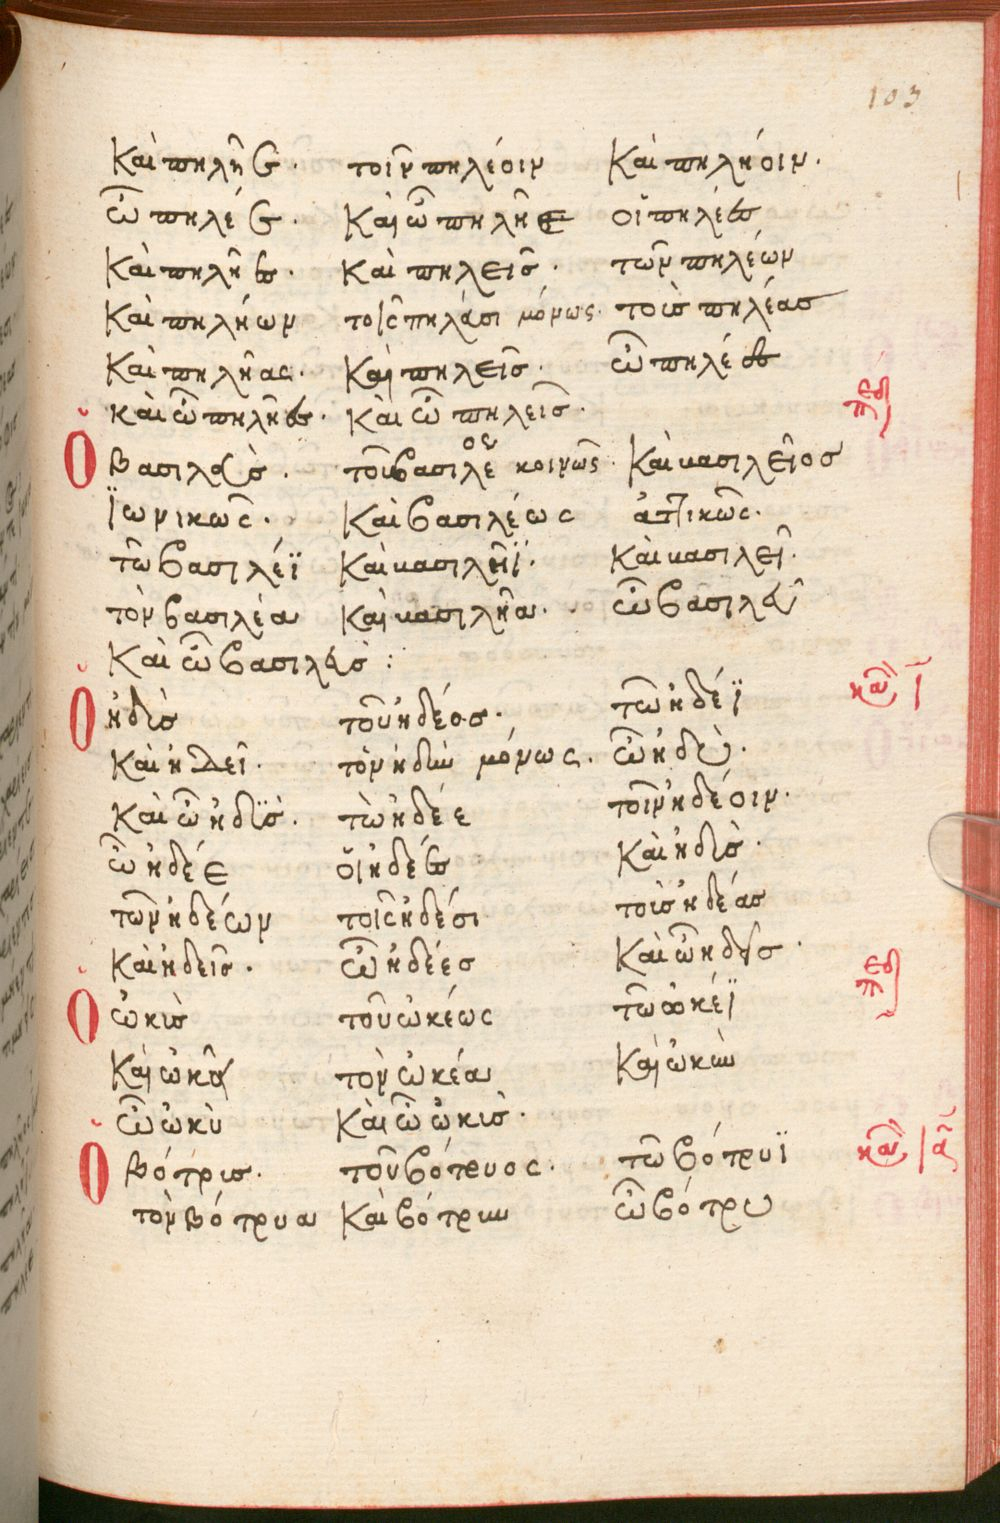 103
καὶ πηλῆε · τοῖν πηλέοιν καὶ πηλήοιν ·
ὦ πηλέε · καὶ ὦ πηλῆε οἱ πηλέες
καὶ πηλῆες · καὶ πηλεῖς · τῶν πηλέων
καὶ πηλήων τοῖς πηλεῦσι μόνως · τοὺς πηλέας
καὶ πηλῆας · καὶ πηλεῖς · ὦ πηλέες
καὶ ὦ πηλῆες · καὶ ὦ πηλεῖς ·
Ὁ βασιλεύς · τοῦ βασιλέος κοινῶς · καὶ βασιλεῖος
ἰωνικῶς · καὶ βασιλέως ἀττικῶς ·
τῶ βασιλέϊ καὶ βασιλῆϊ · καὶ βασιλεῖ ·
τὸν βασιλέα καὶ βασιλῆα · ὦ βασιλεῦ
καὶ ὦ βασιλεύς :
Ὁ ἡδὺς τοῦ ἡδέος · τῶ ἡδέϊ
καὶ ἡδεῖ · τὸν ἡδὺν μόνως · ὦ ἡδὺ ·
καὶ ὦ ἡδὺς · τὼ ἡδέε τοῖν ἡδέοιν ·
ὦ ἡδέε οἱ ἡδέες καὶ ἡδὺς ·
τῶν ἡδέων τοῖς ἡδέσι τοὺς ἡδέας
καὶ ἡδεῖς · ὦ ἡδέες καὶ ὦ ἡδεῖς ·
Ὁ ὠκὺς τοῦ ὠκέως τῶ ὠκέϊ
καὶ ὠκεῖ τὸν ὠκέα καὶ ὠκὺν
ὦ ὠκὺ καὶ ὦ ὠκὺς ·
Ὁ βότρυς · τοῦ βότρυος · τῶ βότρυϊ
τὸν βότρυα καὶ βότρυν ὦ βότρυ